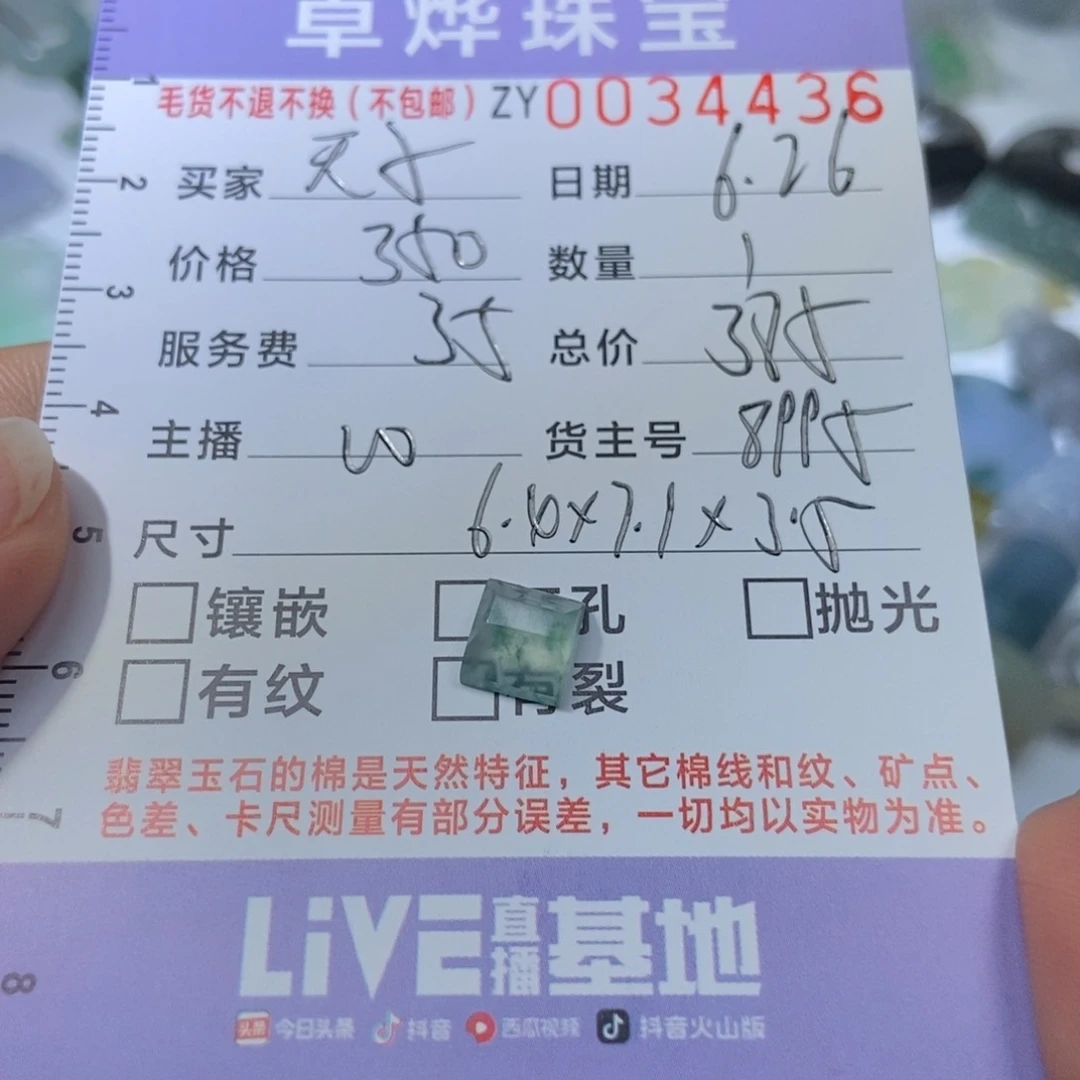 卓烨珠宝
毛货不退不换（不包邮）ZY0034436
买家 天 日期 6.26
价格 350 数量 1
服务费 35 总价 385
主播 W 货主号 8995
尺寸 6.6×7.1×3.5
镶嵌 孔 抛光
有纹 有裂
翡翠玉石的棉是天然特征，其它棉线和纹、矿点、
色差、卡尺测量有部分误差，一切均以实物为准。
LiVE直播基地
头条 今日头条 抖音 西瓜视频 抖音火山版
1
2
3
4
5
6
7
8